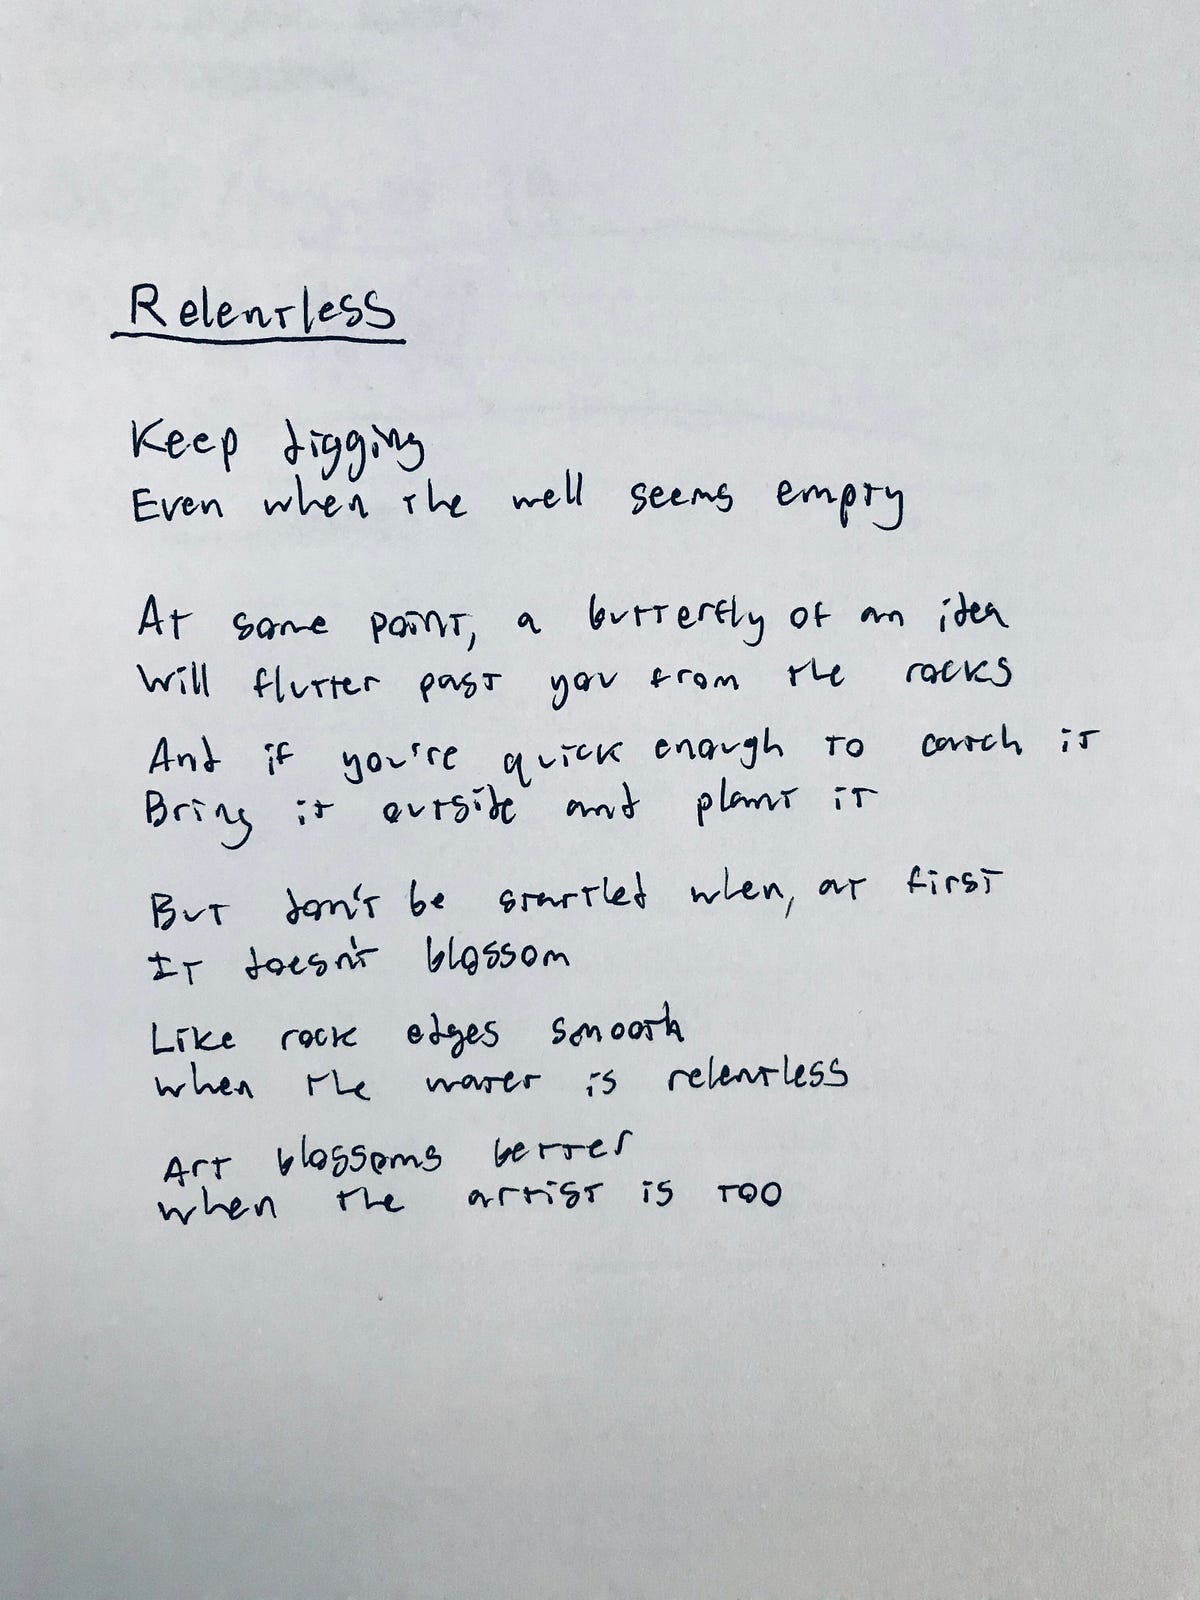 Relentless
Keep digging
Even when the well seems empty
At some point, a butterfly of an idea
Will flutter past you from the rocks
And if you're quick enough to catch it
Bring it outside and plant it
But don't be startled when, at first
It doesn't blossom
Like rock edges smooth
when the water is relentless
Art blossoms better
when the artist is too